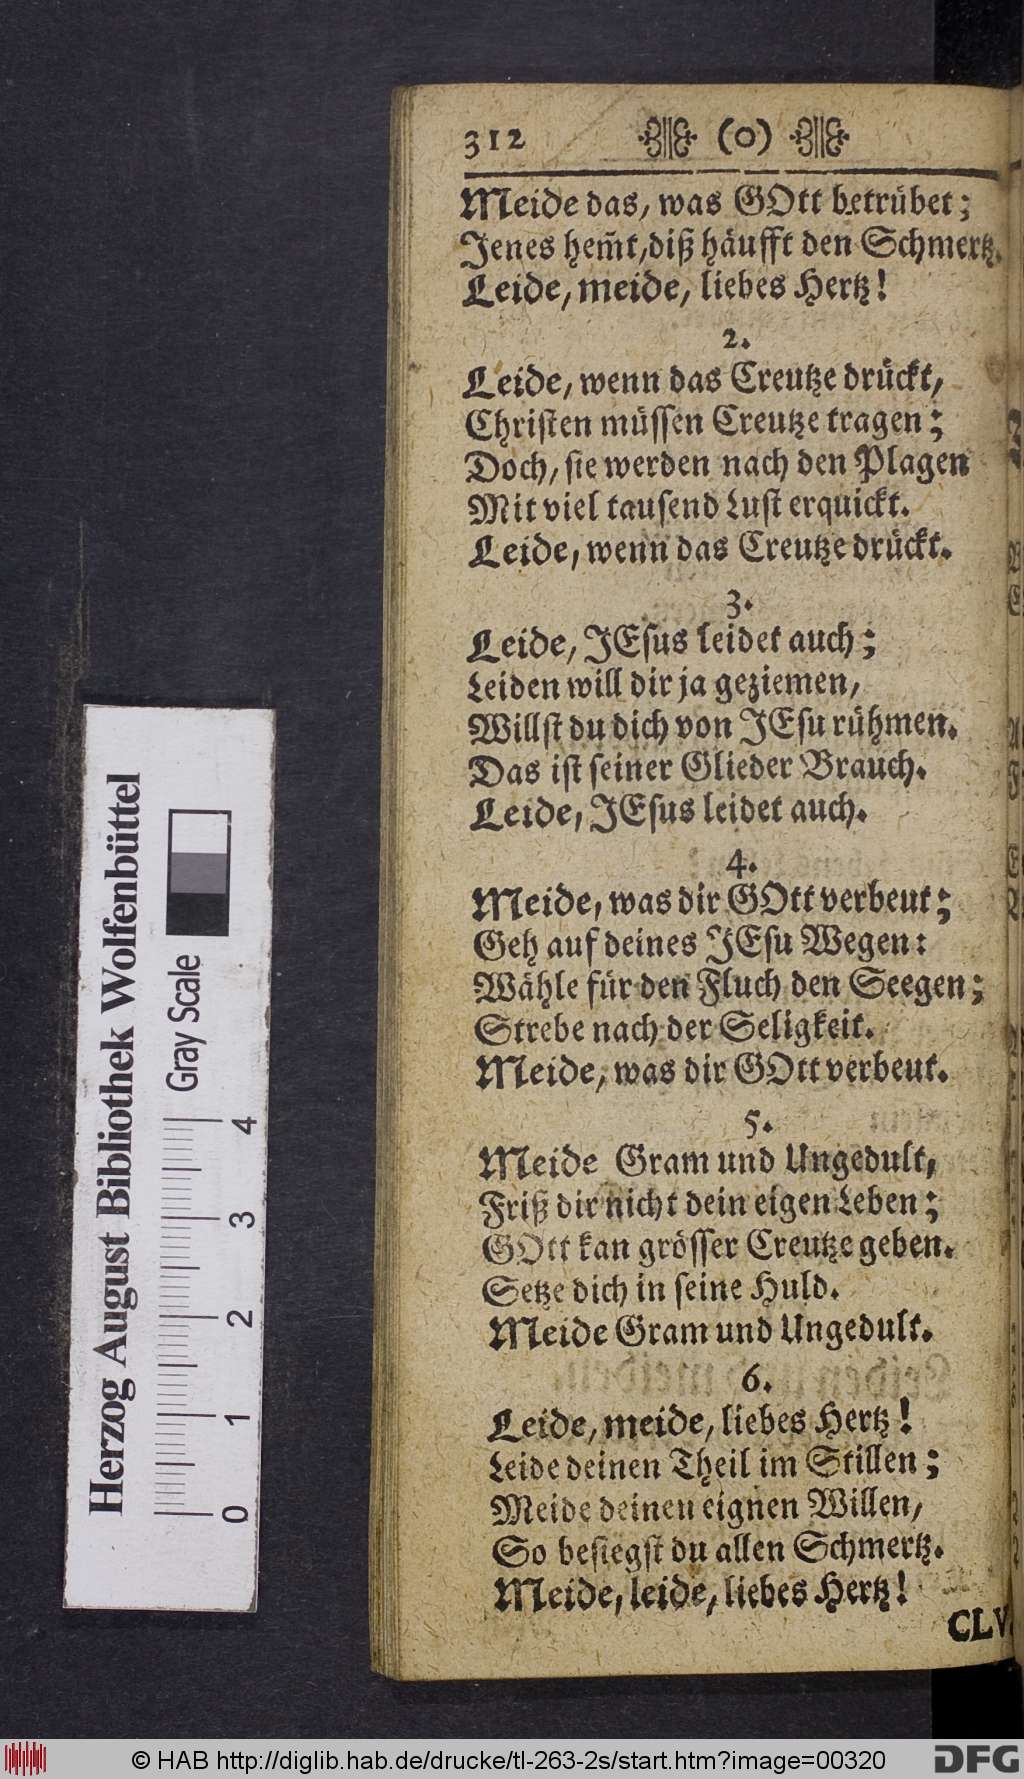 312 (o)
Meide das, was GOtt betrübet;
Jenes hem̃t, diß häufft den Schmertz.
Leide, meide, liebes Hertz!
2.
Leide, wenn das Creutze drückt,
Christen müssen Creutze tragen;
Doch, sie werden nach den Plagen
Mit viel tausend Lust erquickt.
Leide, wenn das Creutze drückt.
3.
Leide, JEsus leidet auch;
Leiden will dir ja geziemen,
Willst du dich von JEsu rühmen.
Das ist seiner Glieder Brauch.
Leide, JEsus leidet auch.
4.
Meide, was dir GOtt verbeut;
Geh auf deines JEsu Wegen:
Wähle für den Fluch den Seegen;
Strebe nach der Seligkeit.
Meide, was dir GOtt verbeut.
5.
Meide Gram und Ungedult,
Friß dir nicht dein eigen Leben;
GOtt kan grösser Creutze geben.
Setze dich in seine Huld.
Meide Gram und Ungedult.
6.
Leide, meide, liebes Hertz!
Leide deinen Theil im Stillen;
Meide deinen eignen Willen,
So besiegst du allen Schmertz.
Meide, leide, liebes Hertz!
CLV.
Herzog August Bibliothek Wolfenbüttel
Gray Scale
0 1 2 3 4
© HAB http://diglib.hab.de/drucke/tl-263-2s/start.htm?image=00320
DFG